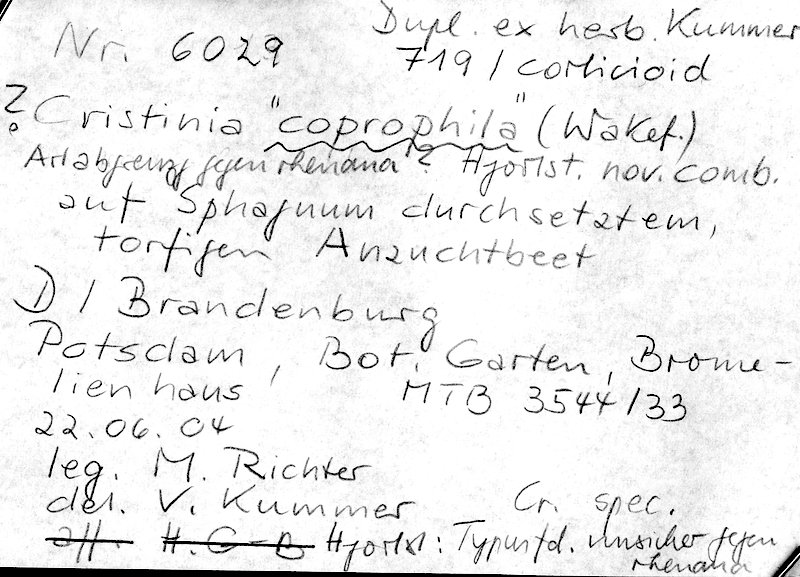 Nr. 6029
Dupl. ex herb. Kummer
719 / corticioid
? Cristinia "coprophila" (Wakef.)
Artabgrenzg gegen rhenana? Hjortst. nov. comb.
auf Sphagnum durchsetztem,
torfigen Anzuchtbeet
D / Brandenburg
Potsdam, Bot. Garten, Brome-
lienhaus MTB 3544/33
22.06.04
leg. M. Richter
det. V. Kummer Cr. spec.
aff. H. G-B Hjortst: unsicher gegen
rhenana